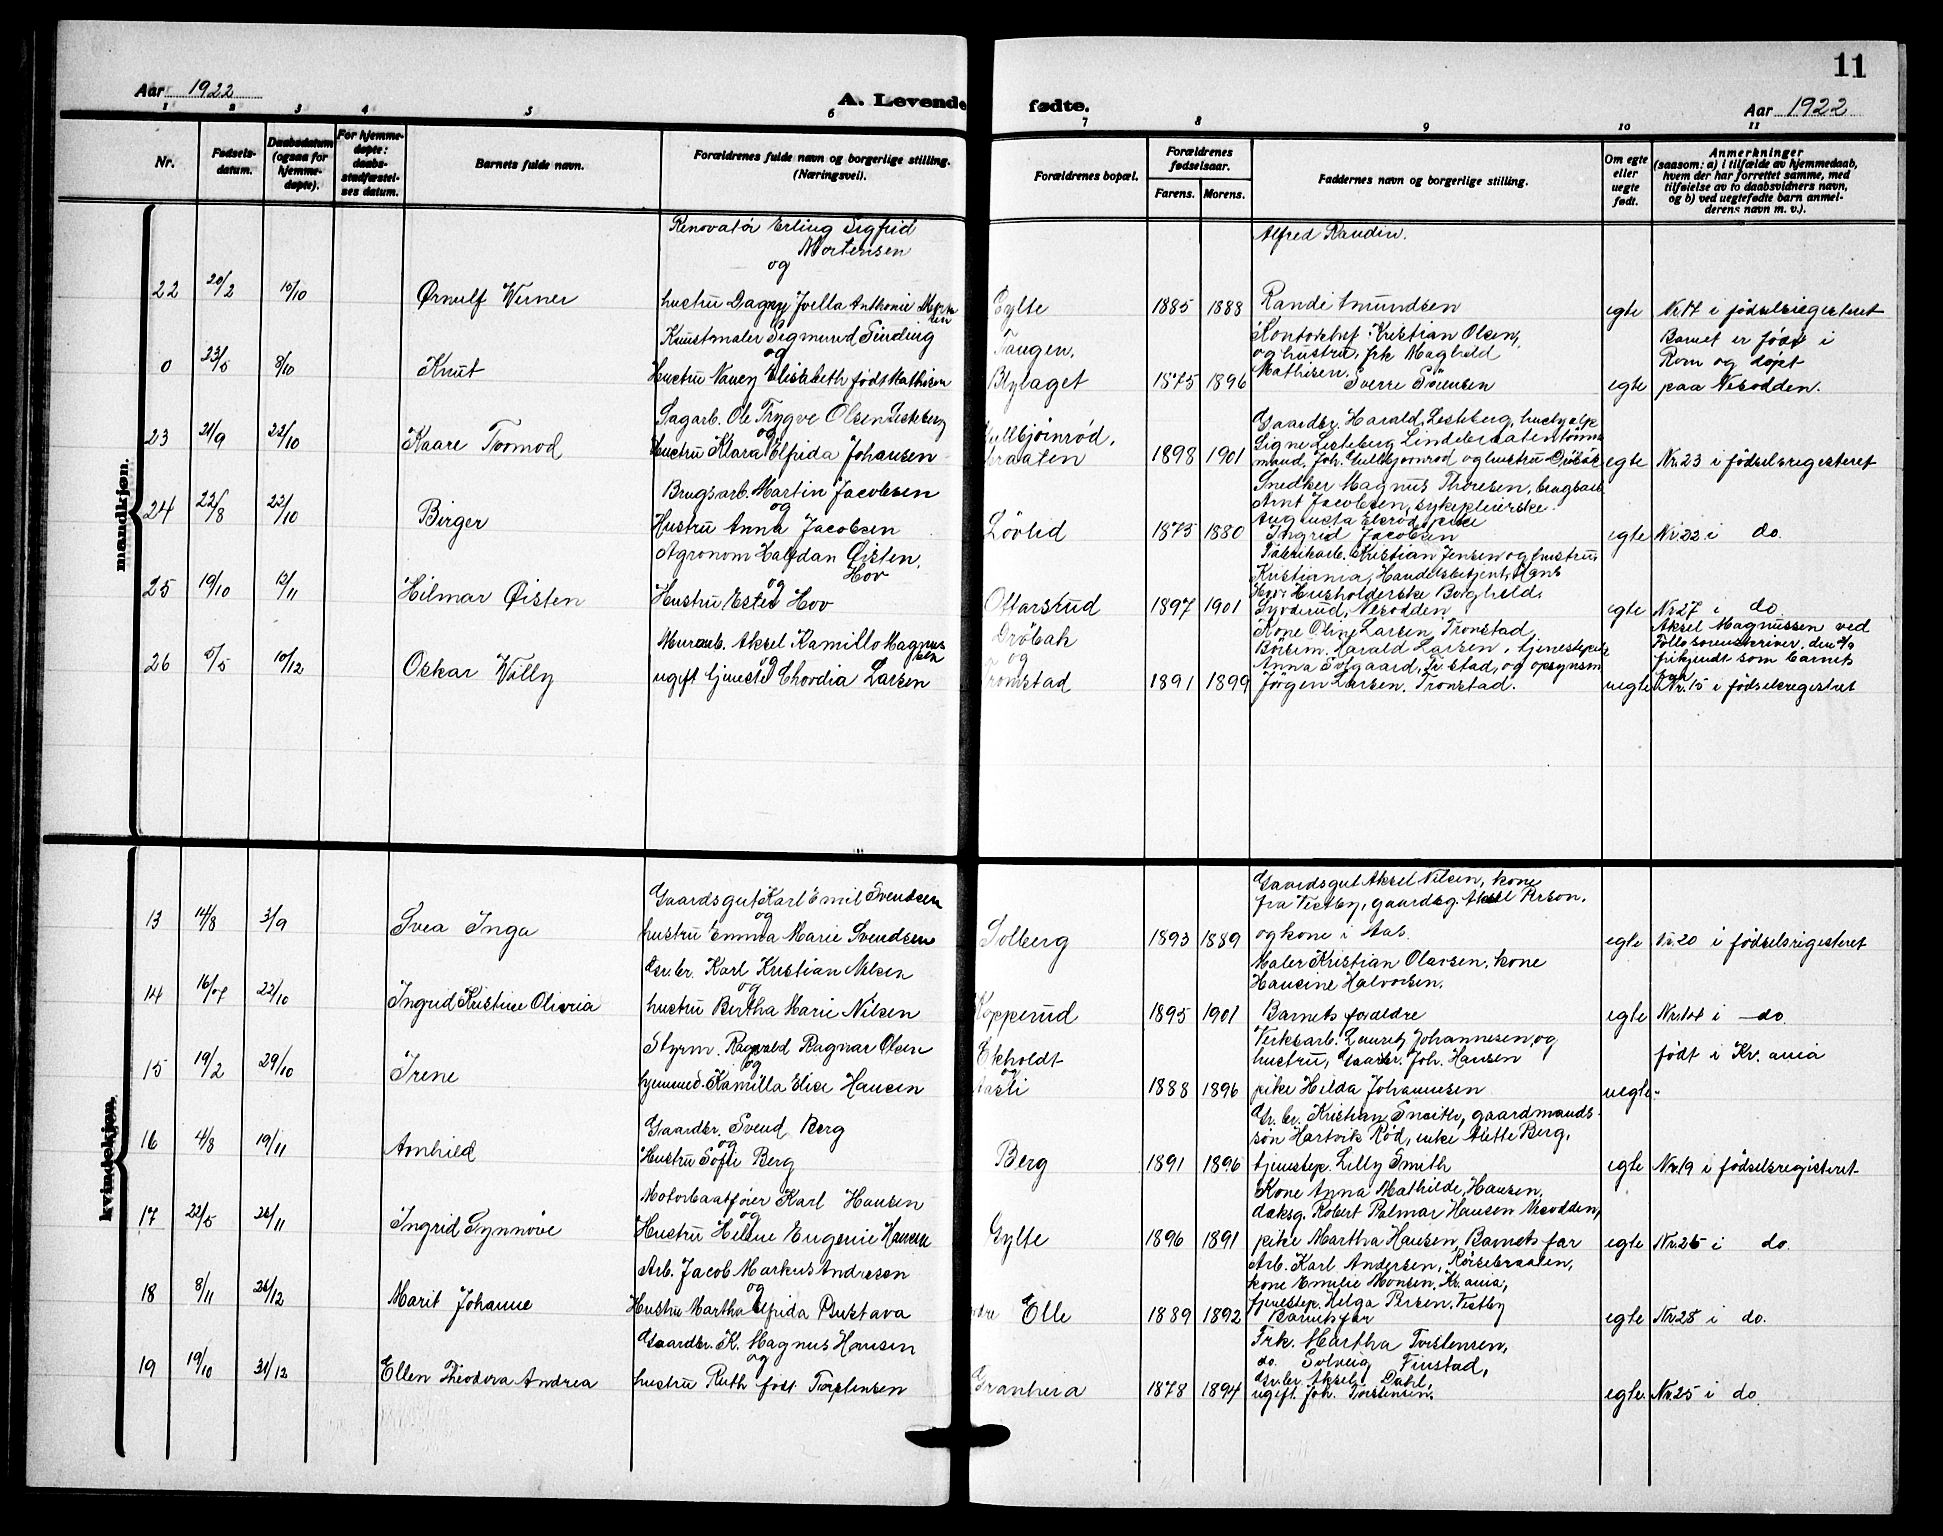 11
Aar 1922
A. Levende fødte.
Aar 1922
1 2 3 4 5 6 7 8 9 10 11
Nr.
Fødsels-
datum.
Daabsdatum
(ogsaa for
hjemme-
døpte).
For hjemme-
døpte:
daabs-
stadfæstel-
ses datum.
Barnets fulde navn.
Forældrenes fulde navn og borgerlige stilling.
(Næringsvei).
Forældrenes bopæl.
Forældrenes
fødselsaar.
Farens. Morens.
Faddernes navn og borgerlige stilling.
Om egte
eller
uegte
født.
Anmerkninger
(saasom: a) i tilfælde av hjemmedaab,
hvem der har forrettet samme, med
tilføielse av to daabsvidners navn,
og b) ved uegtefødte barn anmel-
derens navn m. v.).
mandkjøn.
Renovatør Erling Sigfrid
Mortensen
og
Alfred Randin.
22 20/2 10/10 Ørnulf Werner hustru Dagny Joella Anthonie Gylte 1885 1888 Randi Amundsen egte Nr 17 i fødselsregisteret
Kunstmaler Sigmund Sinding
og
Tangen,
Kontorchef Kristian Olsen,
og hustru, frk Maghild
Mathisen.
Barnet er født i
Rom og døpt
0 23/5 8/10 Knut Hustru Nancy Elisabeth født Mathisen Blylaget 1875 1896 Sverre Sörensen egte paa Nesodden.
Sagarb. Ole Trygve Olsen Lekberg
og
Gaardbr. Harald Lekberg,
23 21/9 22/10 Kaare Tormod Hustru Klara Elfrida Johansen braaten 1898 1901 egte Nr. 23 i fødselsregisteret
Brugsarb. Martin Jacobsen
og
Snedker Magnus Thoresen,
Arnt Jacobsen, sykepleierske
24 22/8 22/10 Birger Hustru Anna Jacobsen Lövlid 1875 1880 Ingrid Jacobsen egte Nr 22 i do.
Agronom Halfdan Øisten
Hov
og
Fabrikarb. Kristian Jensen og hustru,
Kristiania, Handelsbetjent Hans
Hov, Husholderske Borghild
25 19/10 12/11 Hilmar Øisten Hustru Ester Hov Oftarstud 1897 1901 Nesodden egte Nr 27 i do.
Murarb. Aksel Kamillo Magnus
sen
og
Dröbak
og
Kone Oline Larsen Tronstad,
Harald Larsen, tjenestepike
Aksel Magnussen ved
Follo sorenskriver, den
frikjendt som barnets
far
26 5/5 10/12 Oskar Willy ugift tjeneste Chordia Larsen Tronstad 1891 1899 Jørgen Larsen, Tronstad. uegte Nr. 15 i fødselsregistret
kvindekjøn.
Gaardsgut Karl Emil Svendsen
og
Gaardsgut Aksel Nilsen, kone
fra Vestby, gaardbg. Person.
13 14/8 3/9 Svea Inga hustru Emma Marie Svendsen Solberg 1893 1889 og kone i Aas. egte Nr. 20 i fødselsregisteret
Gr.br. Karl Kristian Nilsen
og
Maler Kristian Olavsen, kone
Hansine Halvorsen.
14 16/7 22/10 Ingrid Kristine Olivia hustru Bertha Marie Nilsen Kopperud 1895 1901 Barnets foreldre egte i do.
Styrm. Ragnvald Ragnar Olsen
og
Ekholdt
og
Verksarb. Lauritz Johannesen, og
hustru, Gaardbr. Joh. Hansen
født i Kr.ania
15 19/2 29/10 Irene hjemmed. Kamilla Elise Hansen 1888 1896 pike Hilda Johannesen uegte.
Gaardbr. Svend Berg
og
Gr. br. Kristian Smith, gaardmands-
søn Hartvik Rød, enke Alette Berg,
16 4/8 19/11 Arnhild Hustru Sofie Berg Berg 1891 1896 tjenestep. Lilly Smith egte Nr. 19 i fødselsregisteret
Motorbaatfører Karl Hansen
og
Kone Anna Mathilde Hansen,
daksg. Robert Palmar Hansen Nesodden,
17 22/5 26/11 Ingrid Synnøve Hustru Helene Eugenie Hansen Gylte 1896 1891 pike Martha Hansen, Barnets far egte i do.
Arb. Jacob Markus Andresen
og
Arb. Karl Andersen,
kone Emilie Monsen, Kr.ania,
tjenestep. Helga Persen, Vestby
18 8/11 26/12 Marit Johanne Hustru Martha Elfrida Gustava Elle 1889 1892 Barnets far egte Nr. 28 i do.
Gaardbr. K. Magnus Hansen
og
Frk. Martha Torstensen,
do. Solveig Finstad,
Gr.br Aksel Dahl,
19 19/10 31/12 Ellen Theodora Andrea hustru Ruth født Torstensen Granheia 1878 1894 ugift. Joh. Torstensen. egte. Nr. 25 i do.